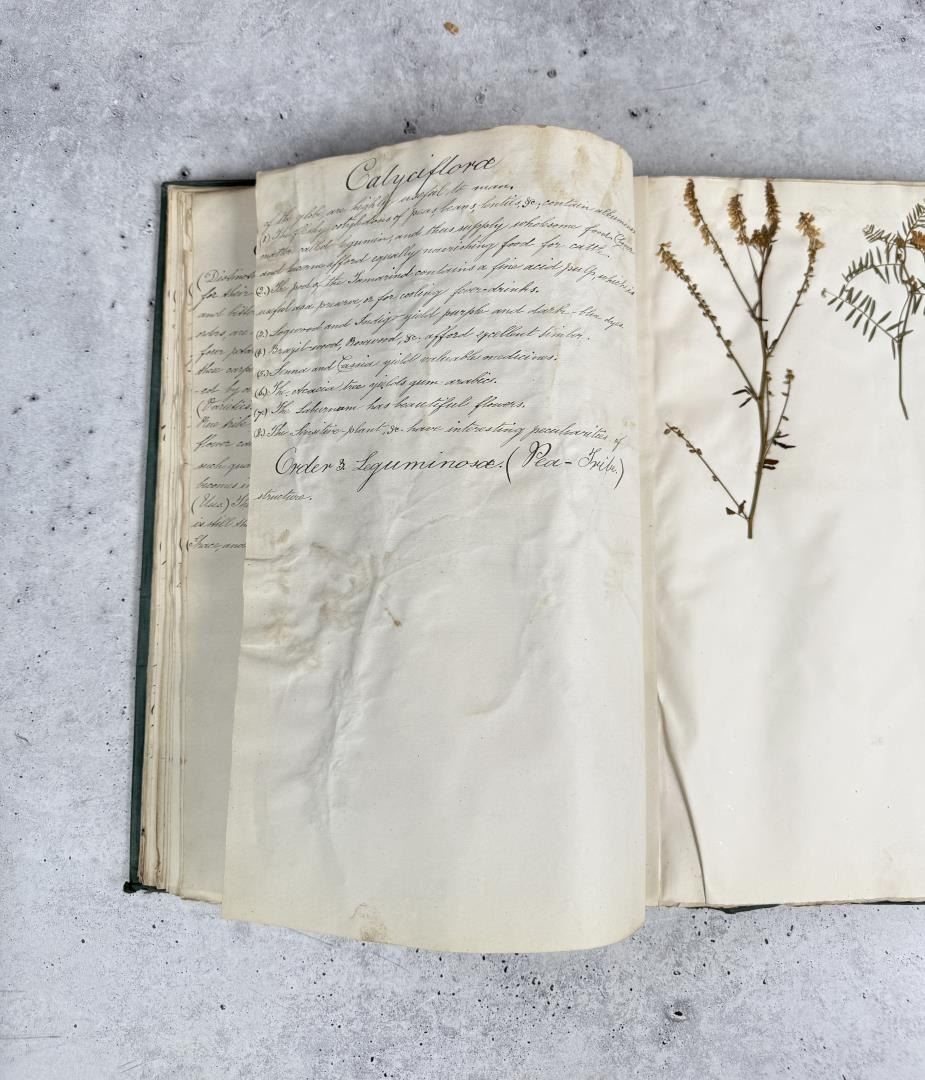 Calyciflora
of the globe are highly useful to man.
(1) The fleshy cotyledons of peas, beans, lentils, &c, contain albumin
matter called legumine, and thus supply wholesome food. Clover
and lucerne afford equally nourishing food for cattle.
(2.) The pod of the Tamarind contains a fine acid pulp, which is
useful as a preserve, or for cooling fever-drinks.
(3.) Logwood and Indigo yield purple and dark-blue dyes.
(4) Brazil-wood, Rosewood, &c. afford excellent timber.
(5.) Senna and Cassia yield valuable medicines.
(6.) The Acacia tree yields gum arabic.
(7.) The Laburnum has beautiful flowers.
(8.) The Sensitive-plant, &c. have interesting peculiarities of
Order 3. Leguminosæ. (Pea-Tribe)
structure.
(Distinct
for their
and bitt
orders, are
four petal
the carp
-ed by a
(Varieties
tribe
flower
such
becomes in
(Uses.) Th
is still th